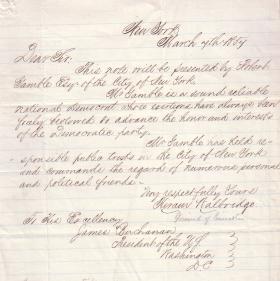 New York
March 7th 1857
Dear Sir:
This note will be presented by Robert
Gamble Esq. of the City of New York
Mr Gamble is a sound reliable
national Democrat whose exertions have always been
freely bestowed to advance the honor and interests
of the Democratic party.
Mr Gamble has held re-
sponsible public trusts in the City of New York
and commands the regard of numerous personal
and political friends.
Very respectfully Yours
Hiram Walbridge
To His Excellency
James Buchanan
President of the U.S.
Washington
D.C